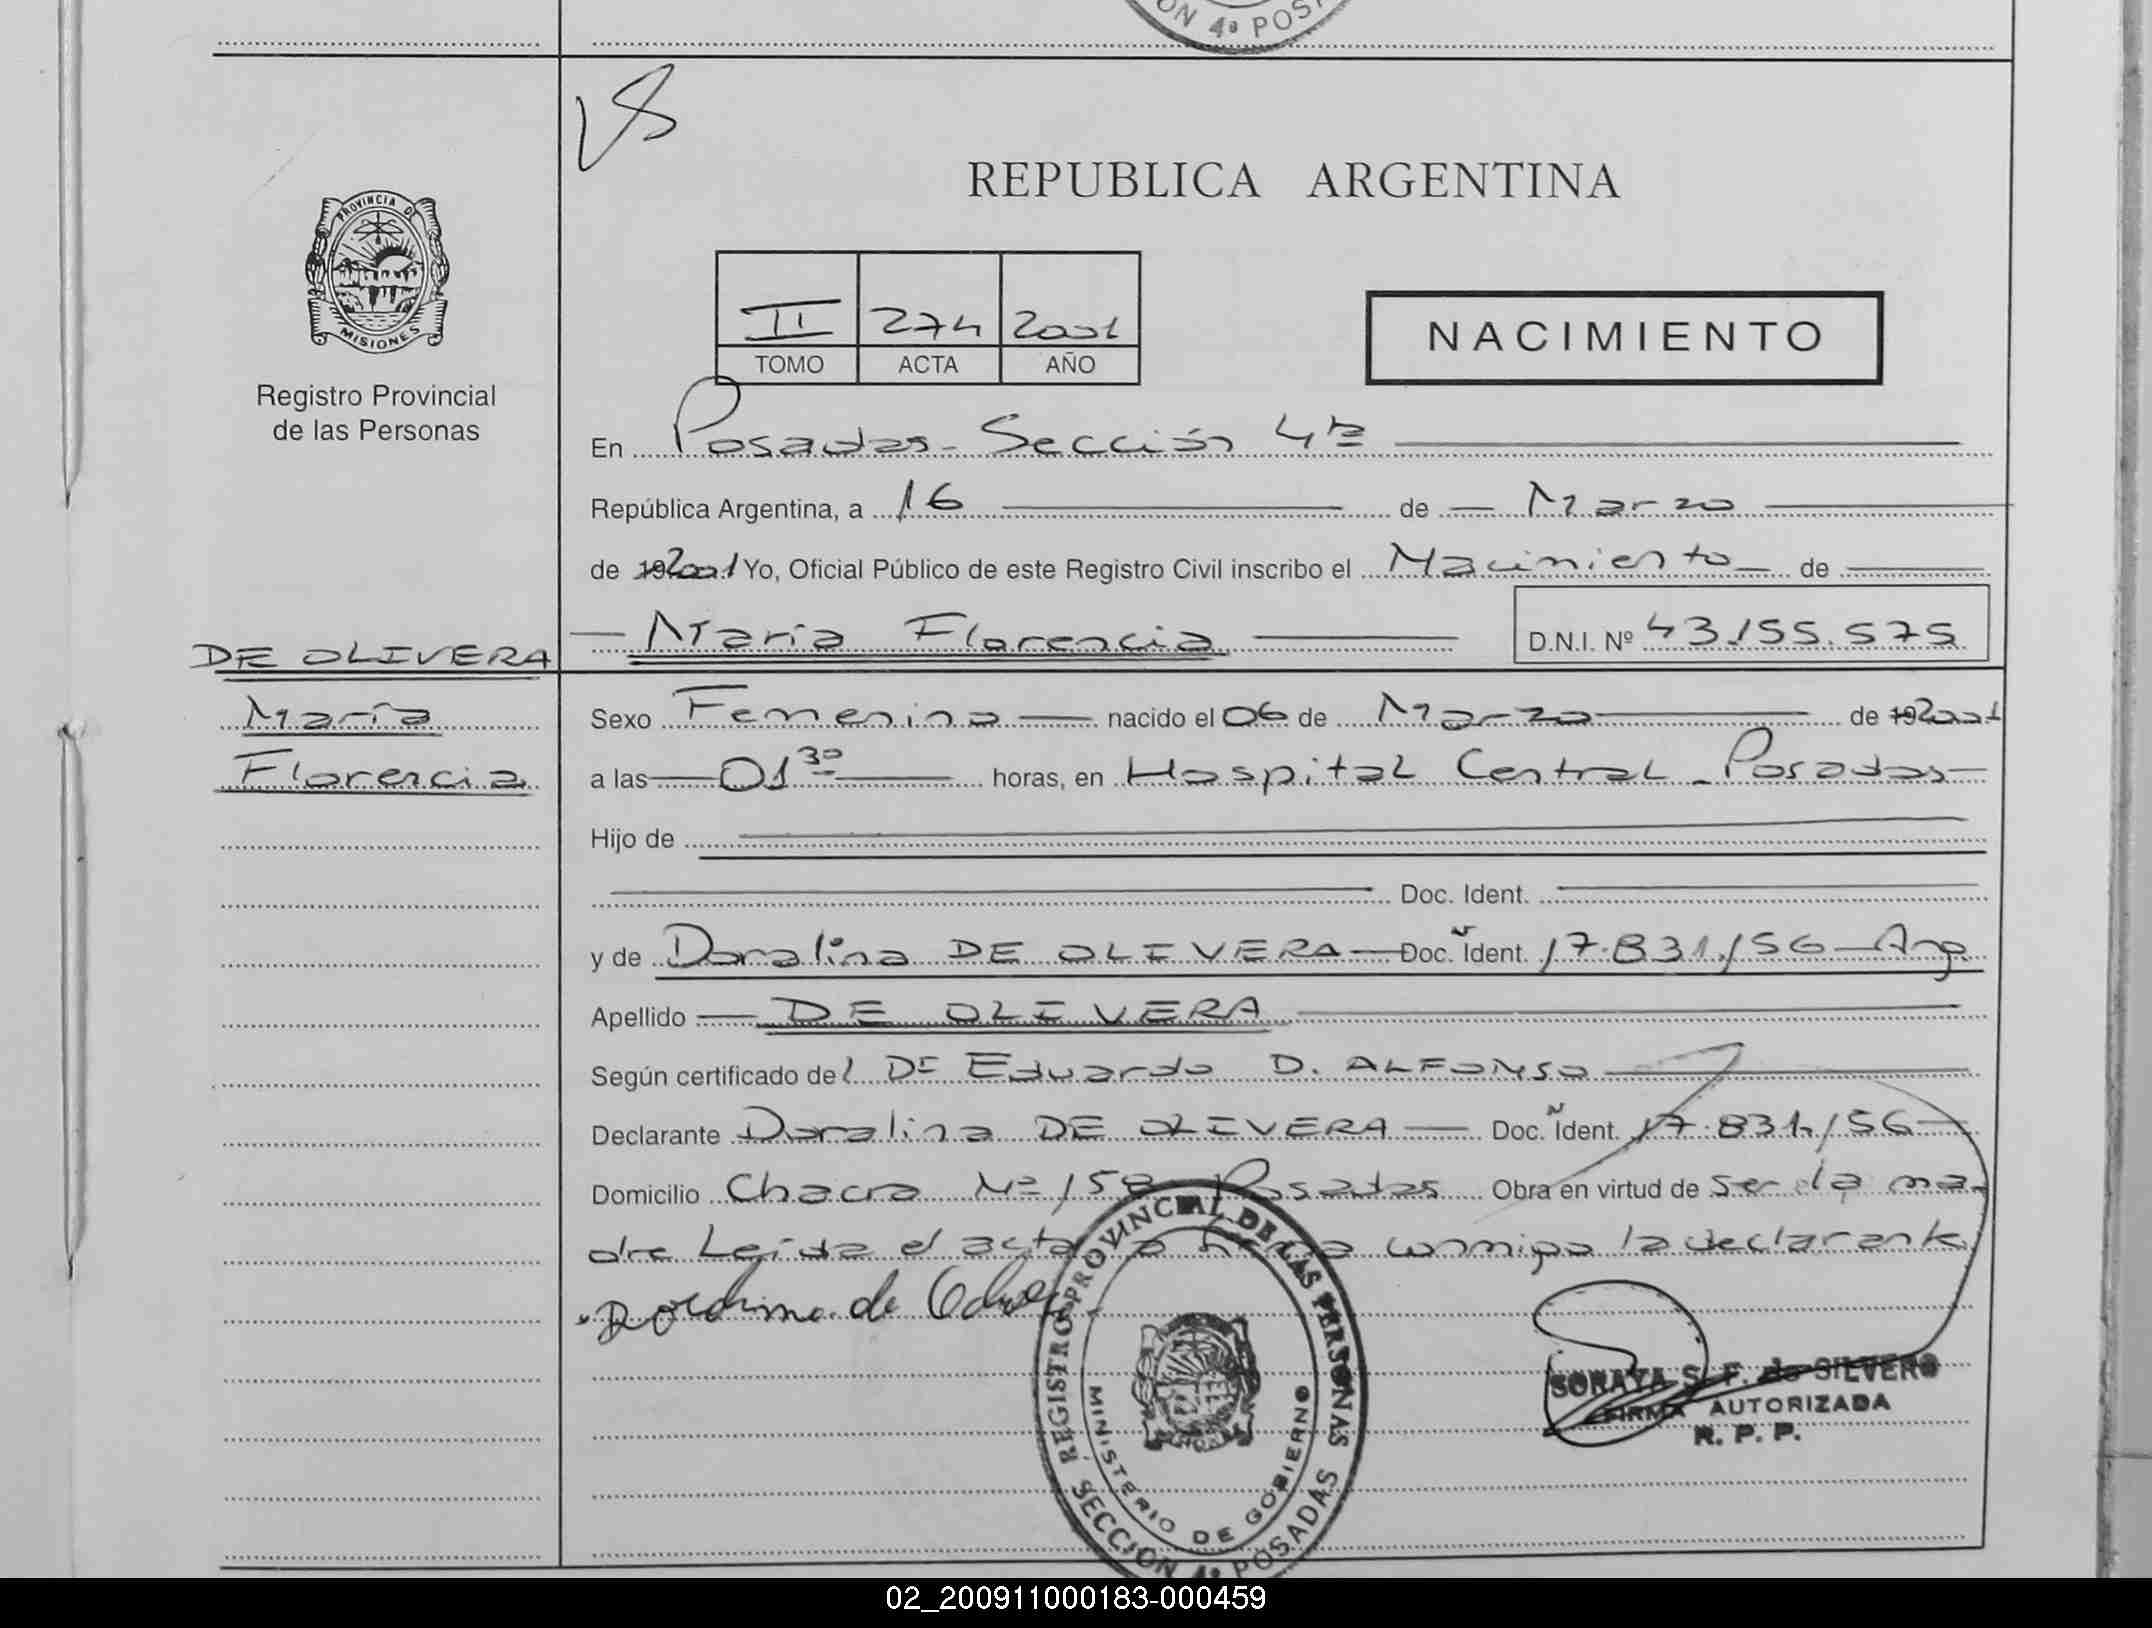 ON 4ª POSA
VS
REPUBLICA ARGENTINA
PROVINCIA DE
MISIONES
II 274 2001
TOMO ACTA AÑO
NACIMIENTO
Registro Provincial
de las Personas
En Posadas - Sección 4ta
República Argentina, a 16 de Marzo
de 192001 Yo, Oficial Público de este Registro Civil inscribo el Nacimiento de
María Florencia D.N.I. Nº 43.155.575
DE OLIVERA
María
Florencia
Sexo Femenino nacido el 06 de Marzo de 192001
a las 01 30 horas, en Hospital Central - Posadas
Hijo de
Doc. Ident.
y de Doralina DE OLIVERA Doc. Ident. 17.831.156 - Arg.
Apellido DE OLIVERA
Según certificado del Dr Eduardo D. ALFONSO
Declarante Doralina DE OLIVERA Doc. Ident. 17.831.156
Domicilio Chacra Nº 158 Posadas Obra en virtud de ser la ma-
dre Leída el acta la firma conmigo la declarante
Doralina de Olivera
REGISTRO PROVINCIAL DE LAS PERSONAS
MINISTERIO DE GOBIERNO
SECCION 4ª POSADAS
SORAYA S. F. de SILVERO
FIRMA AUTORIZADA
R. P. P.
02_200911000183-000459